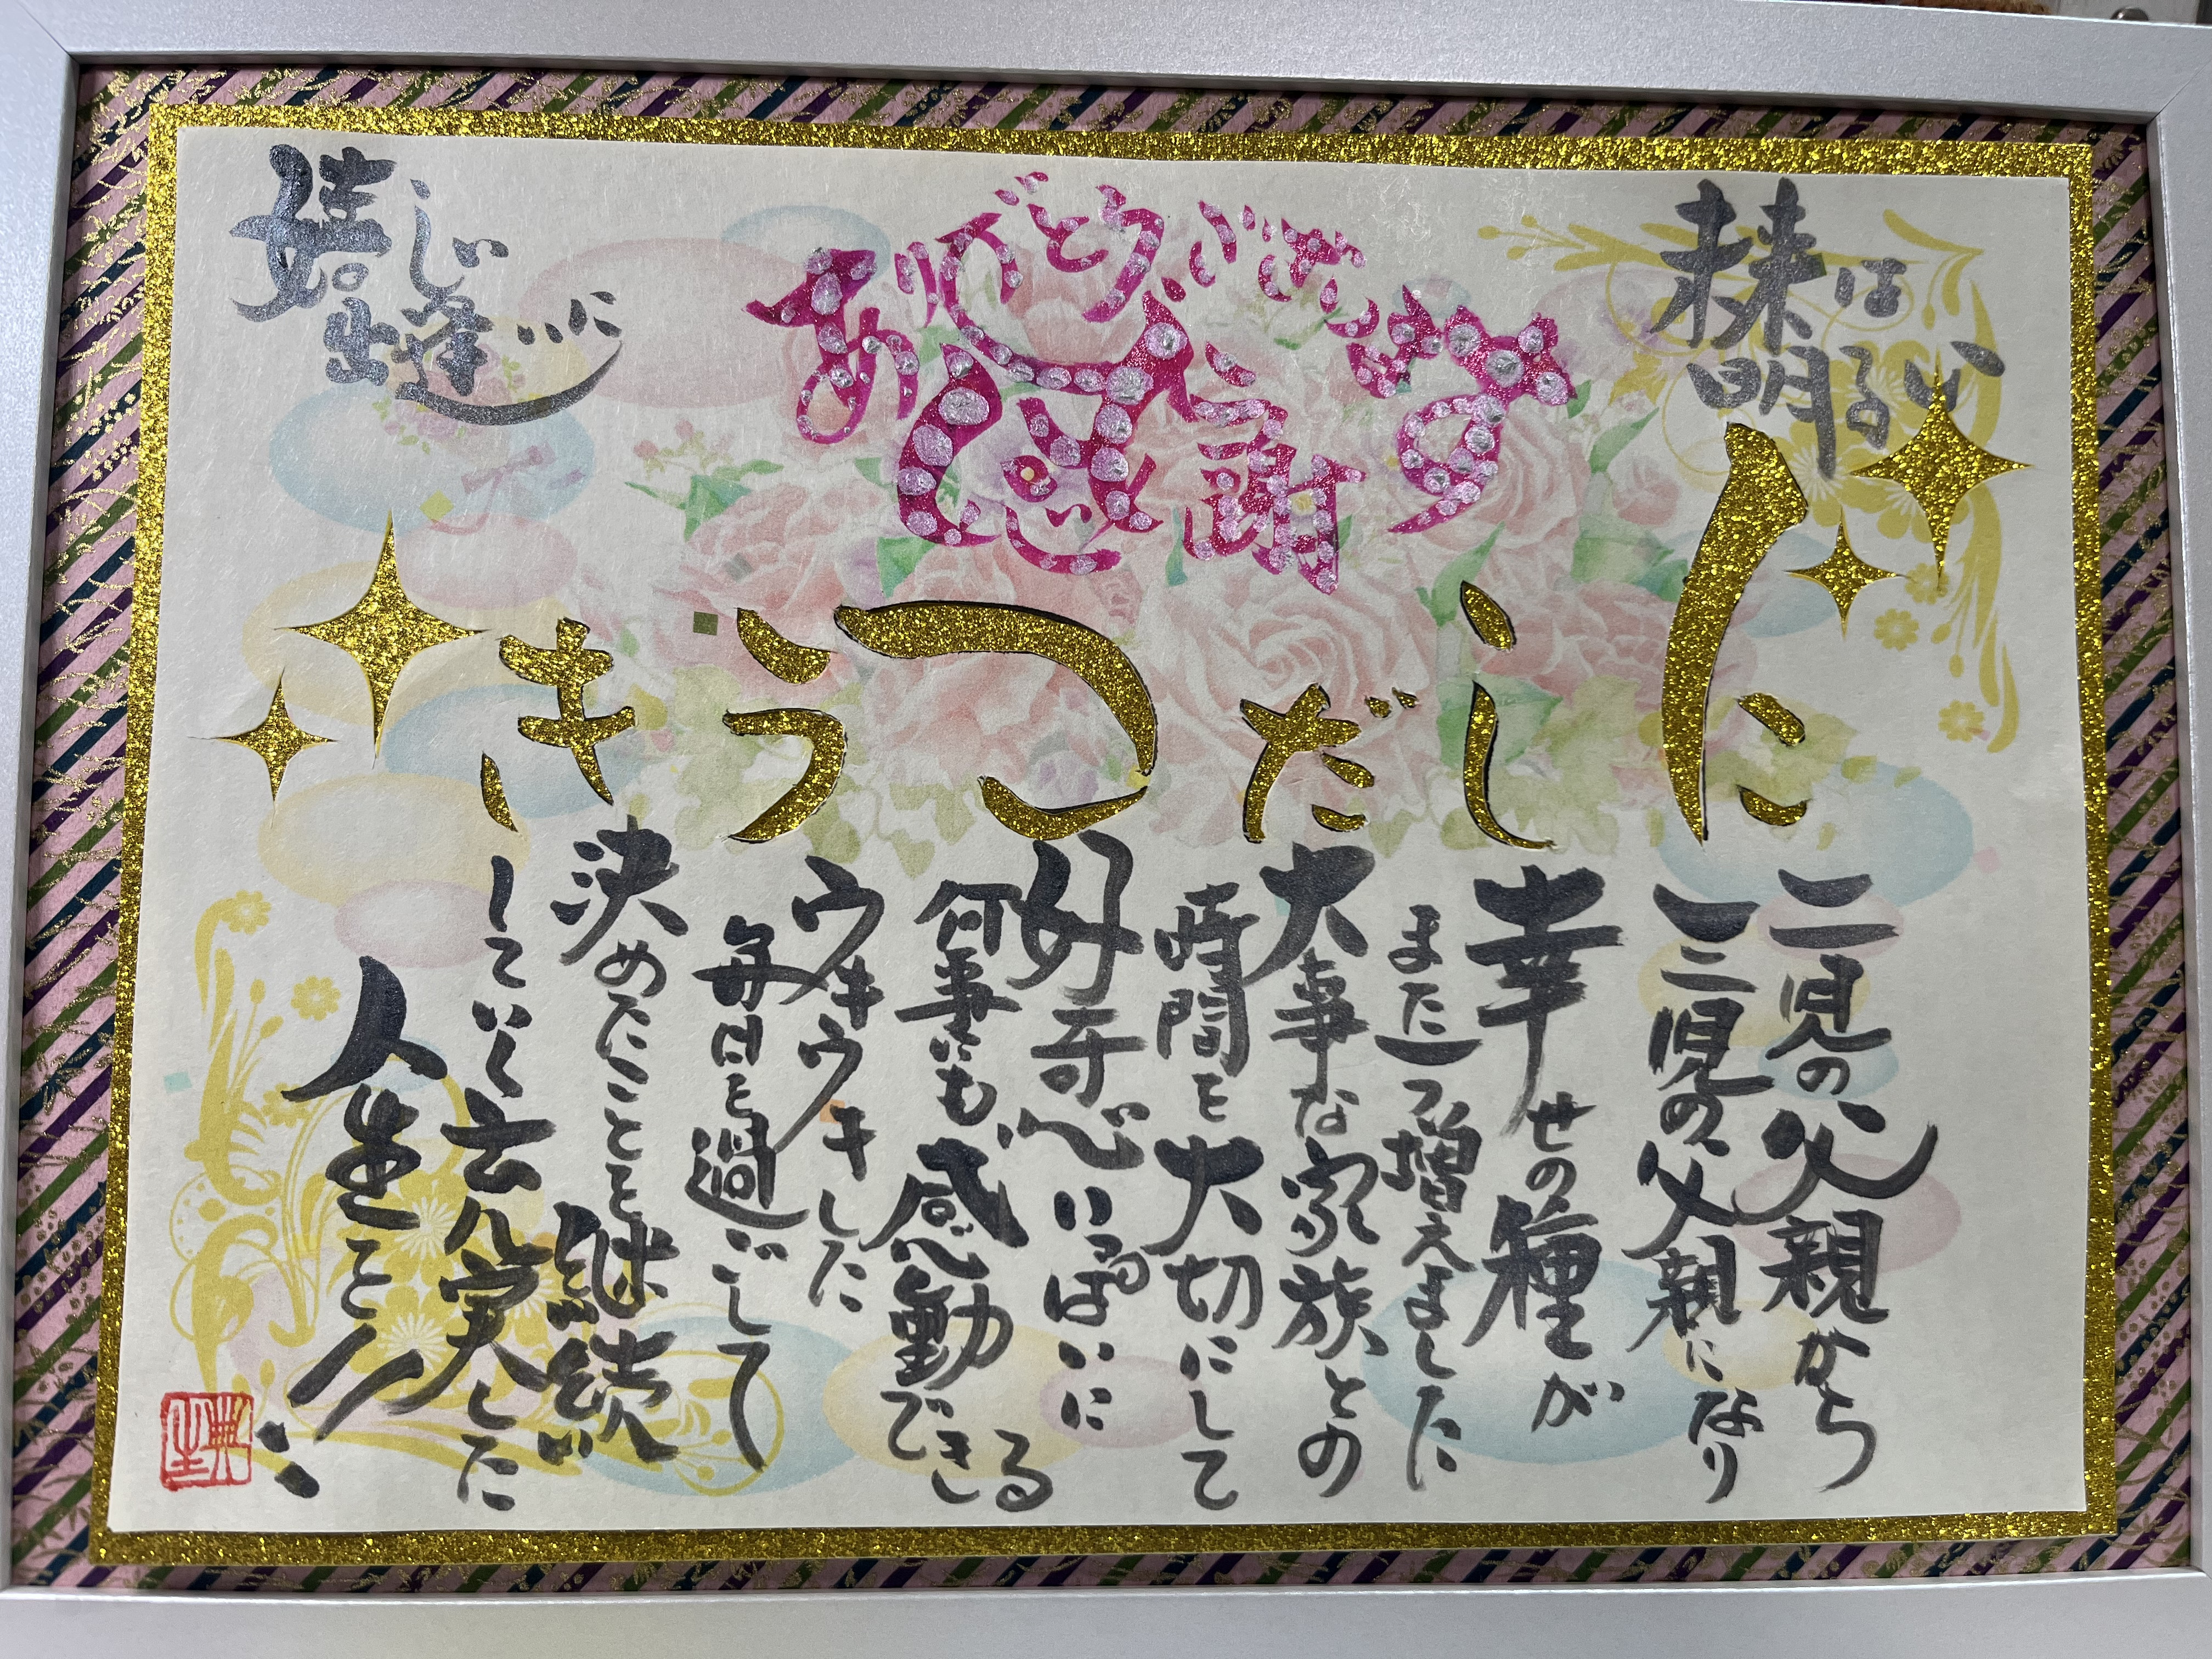 未来は
明るい
ありがとうございます
感謝
嬉しい
出逢いに
にしだこうき
二児の父親から
三児の父親になり
幸せの種が
また一つ増えました
大事な家族との
時間を大切にして
好奇心いっぱいに
何事にも、感動できる
ウキウキした
毎日を過ごして
決めたことを継続
していく充実した
人生を!!